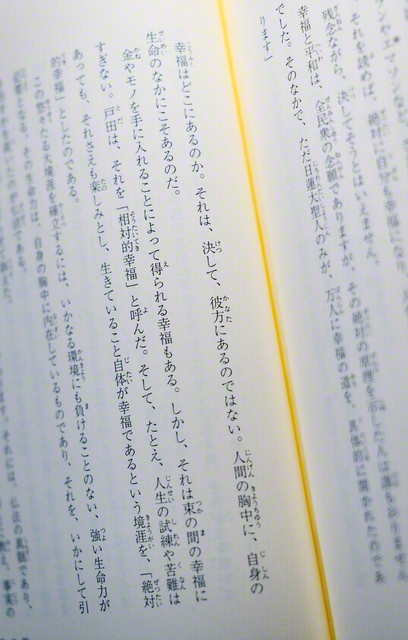 それを読めば、絶対に自分も幸福になり、
残念ながら、決してそうとはいえません。
幸福と平和は、全民衆の念願でありますが、その絶対の原理を示した人は誰もおりません
でした。そのなかで、ただ日蓮大聖人のみが、万人に幸福の道を、具体的に開かれたのであ
ります」
幸福はどこにあるのか。それは、決して、彼方にあるのではない。人間の胸中に、自身の
生命のなかにこそあるのだ。
金やモノを手に入れることによって得られる幸福もある。しかし、それは束の間の幸福に
すぎない。戸田は、それを「相対的幸福」と呼んだ。そして、たとえ、人生の試練や苦難は
あっても、それさえも楽しみとし、生きていること自体が幸福であるという境涯を、「絶対
的幸福」としたのである。
この悠々たる大境涯を確立するには、いかなる環境にも負けることのない、強い生命力が
必要となる。その生命力は、自身の胸中に内在しているものであり、それを、いかにして引